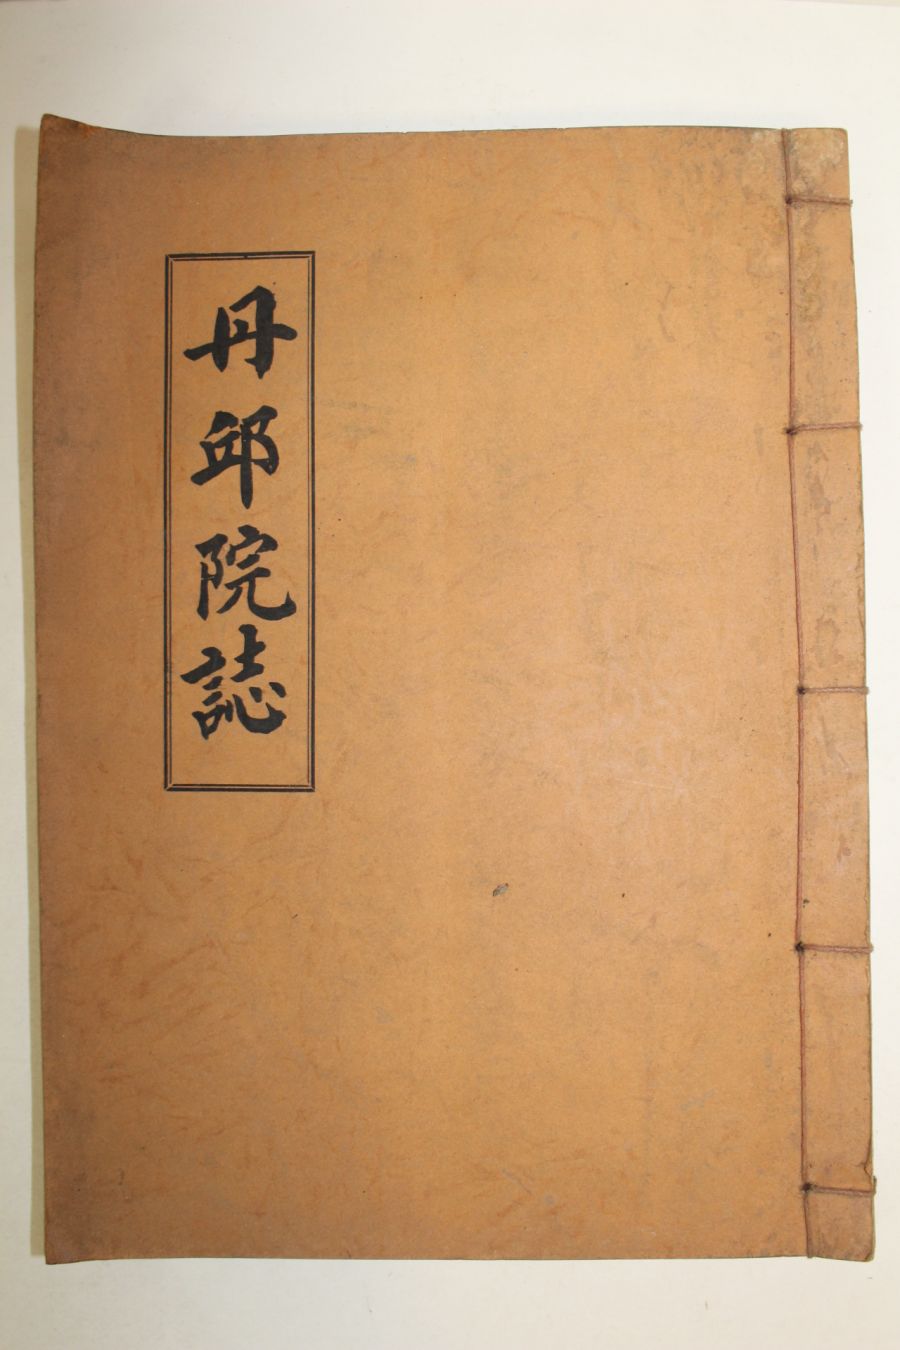 丹邱院誌